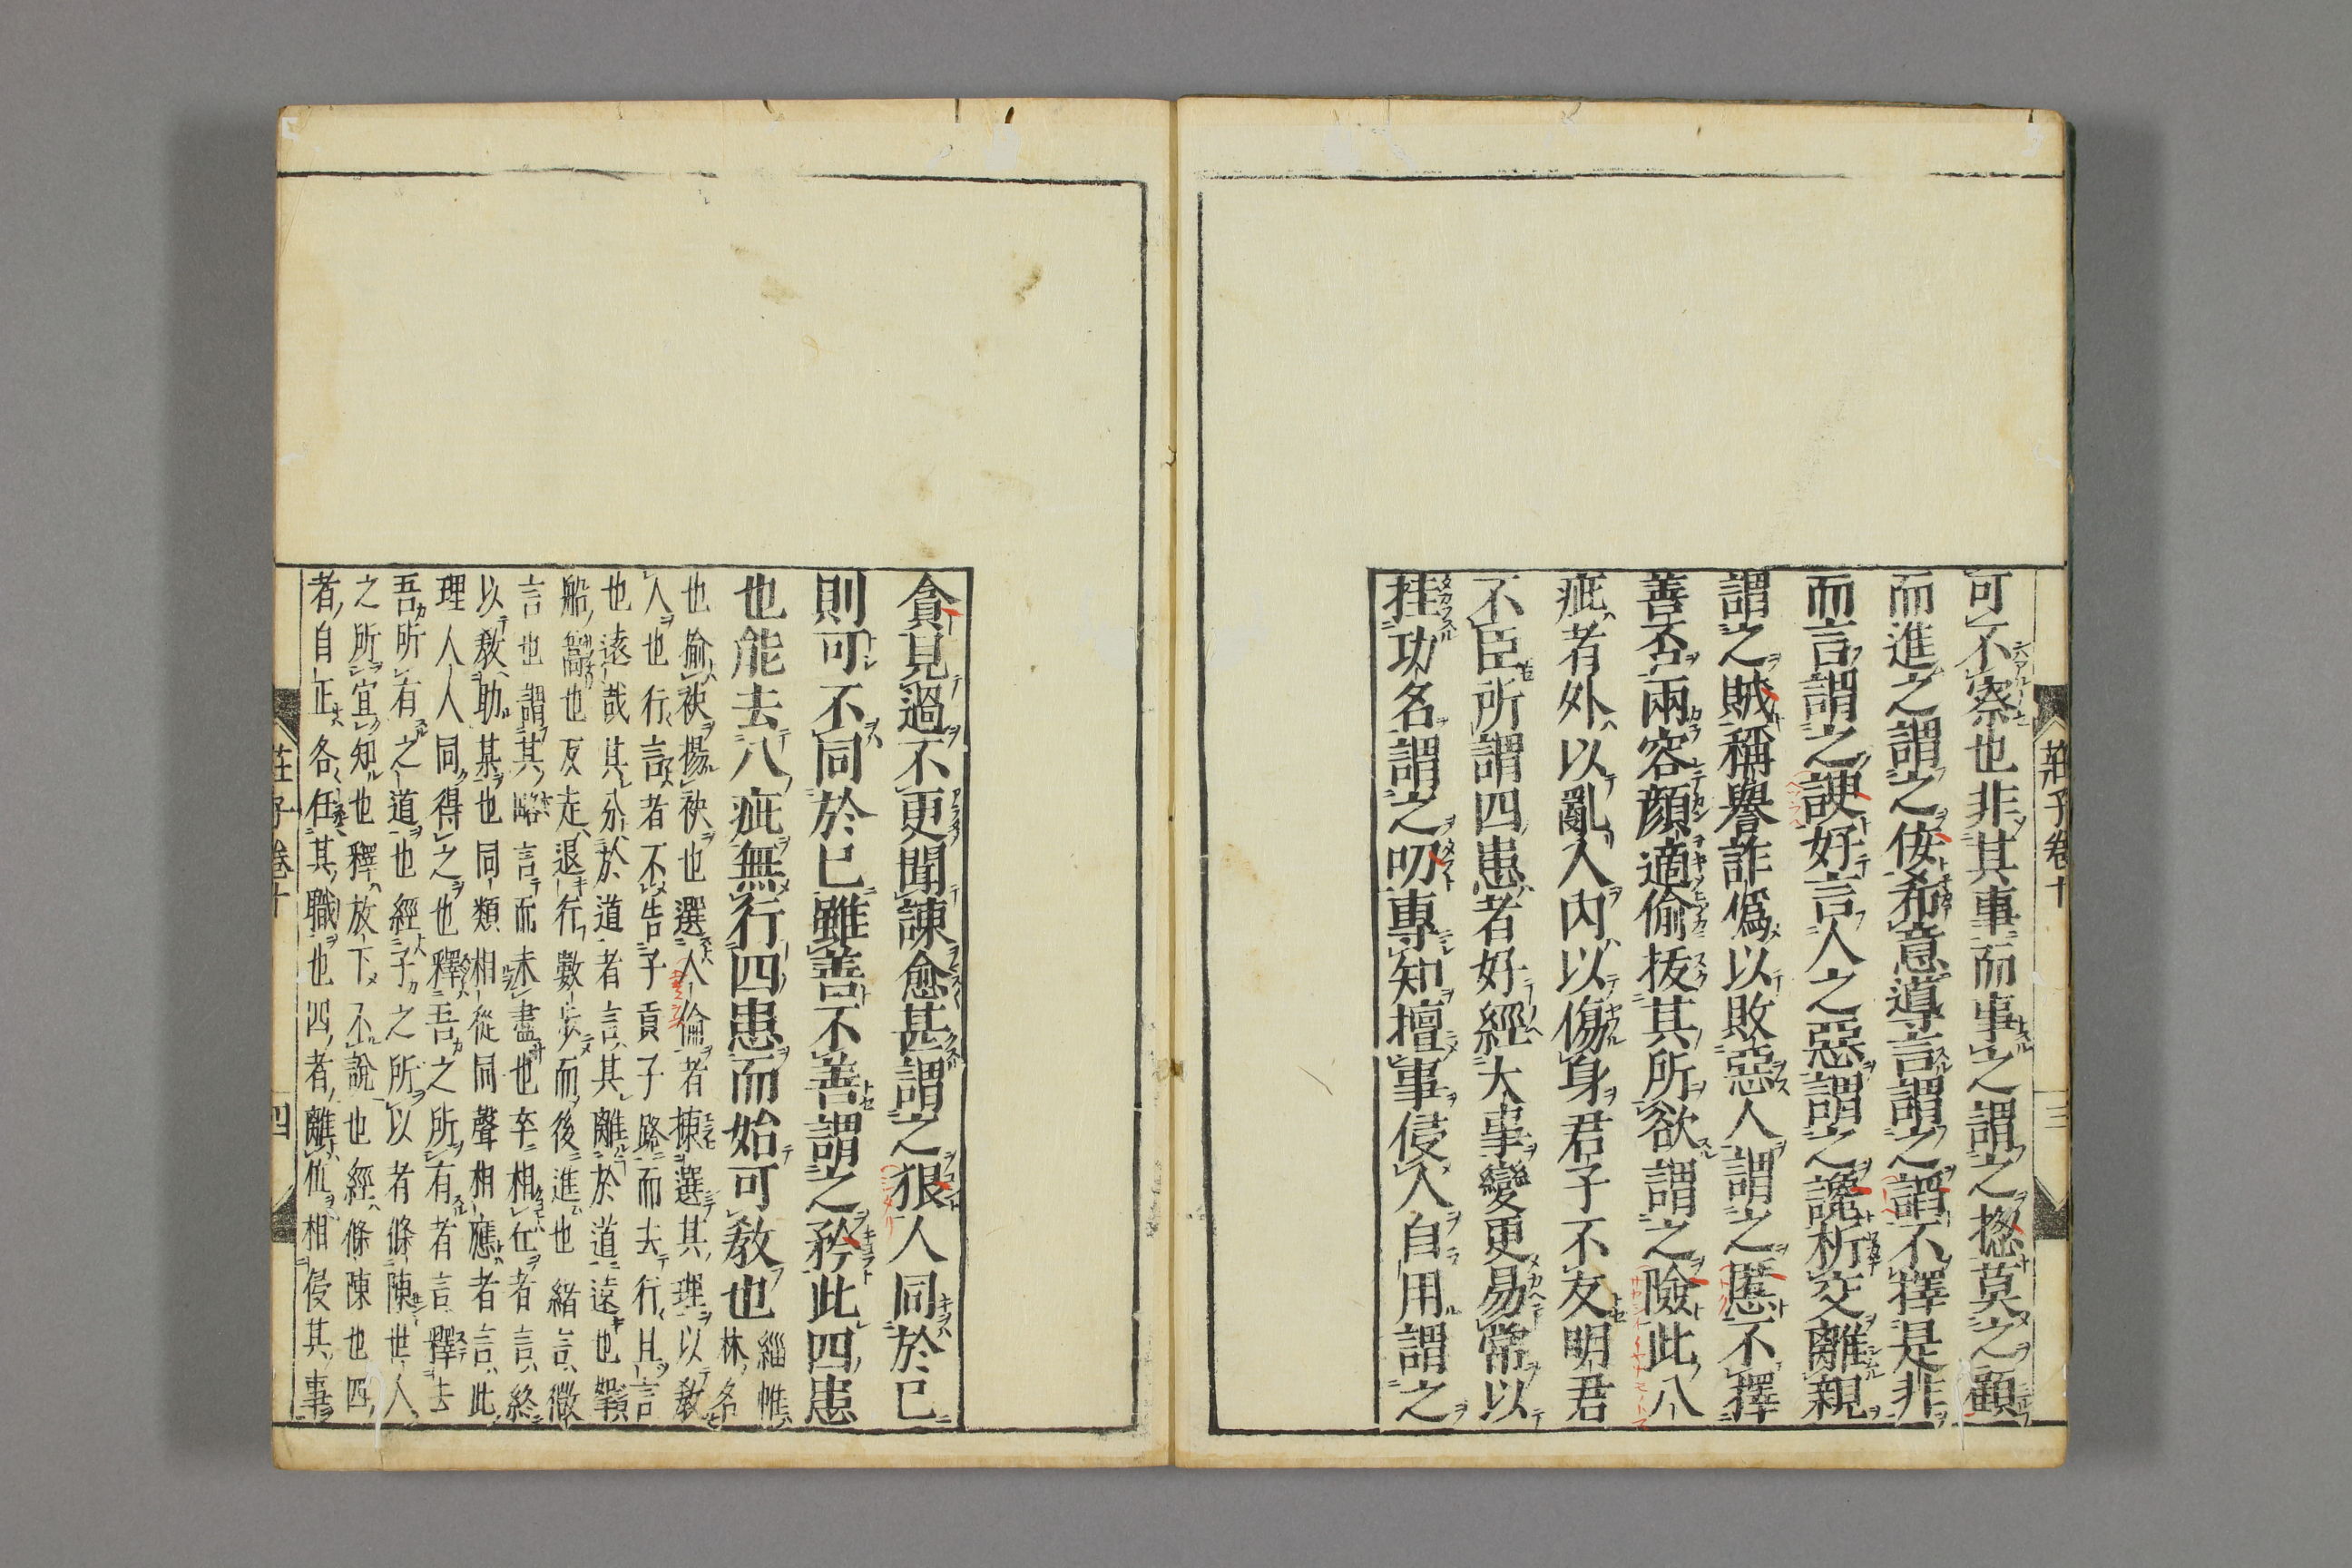 莊子卷十
三
可不察也非其事而事之謂之摠莫之顧
而進之謂之佞希意導言謂之諂不擇是非
而言謂之諛好言人之惡謂之讒析交離親
謂之賊稱譽詐僞以敗惡人謂之慝不擇
善否兩容顔適偷拔其所欲謂之險此八
疵者外以亂人內以傷身君子不友明君
不臣所謂四患者好經大事變更易常以
挂功名謂之叨專知擅事侵人自用謂之
貪見過不更聞諫愈甚謂之狠人同於已
則可不同於已雖善不善謂之矜此四患
也能去八疵無行四患而始可敎也
緇帷
林名
也揄袂揚袂也選人倫者揀選其理以敎
人也行言者不告子貢子路而去行且言
也遠哉其分於道者言其離於道遠也挐
船篙也反走退行數步而後進也緒言微
言也謂其略言而未盡也卒相丘者言終
以敎助某也同類相從同聲相應者言此
理人人同得之也釋吾之所有者言釋去
吾所有之道也經子之所以者條陳世人
之所宜知也釋放下不說也經條陳也四
者自正各任其職也四者離位相侵其事
莊子卷十
四